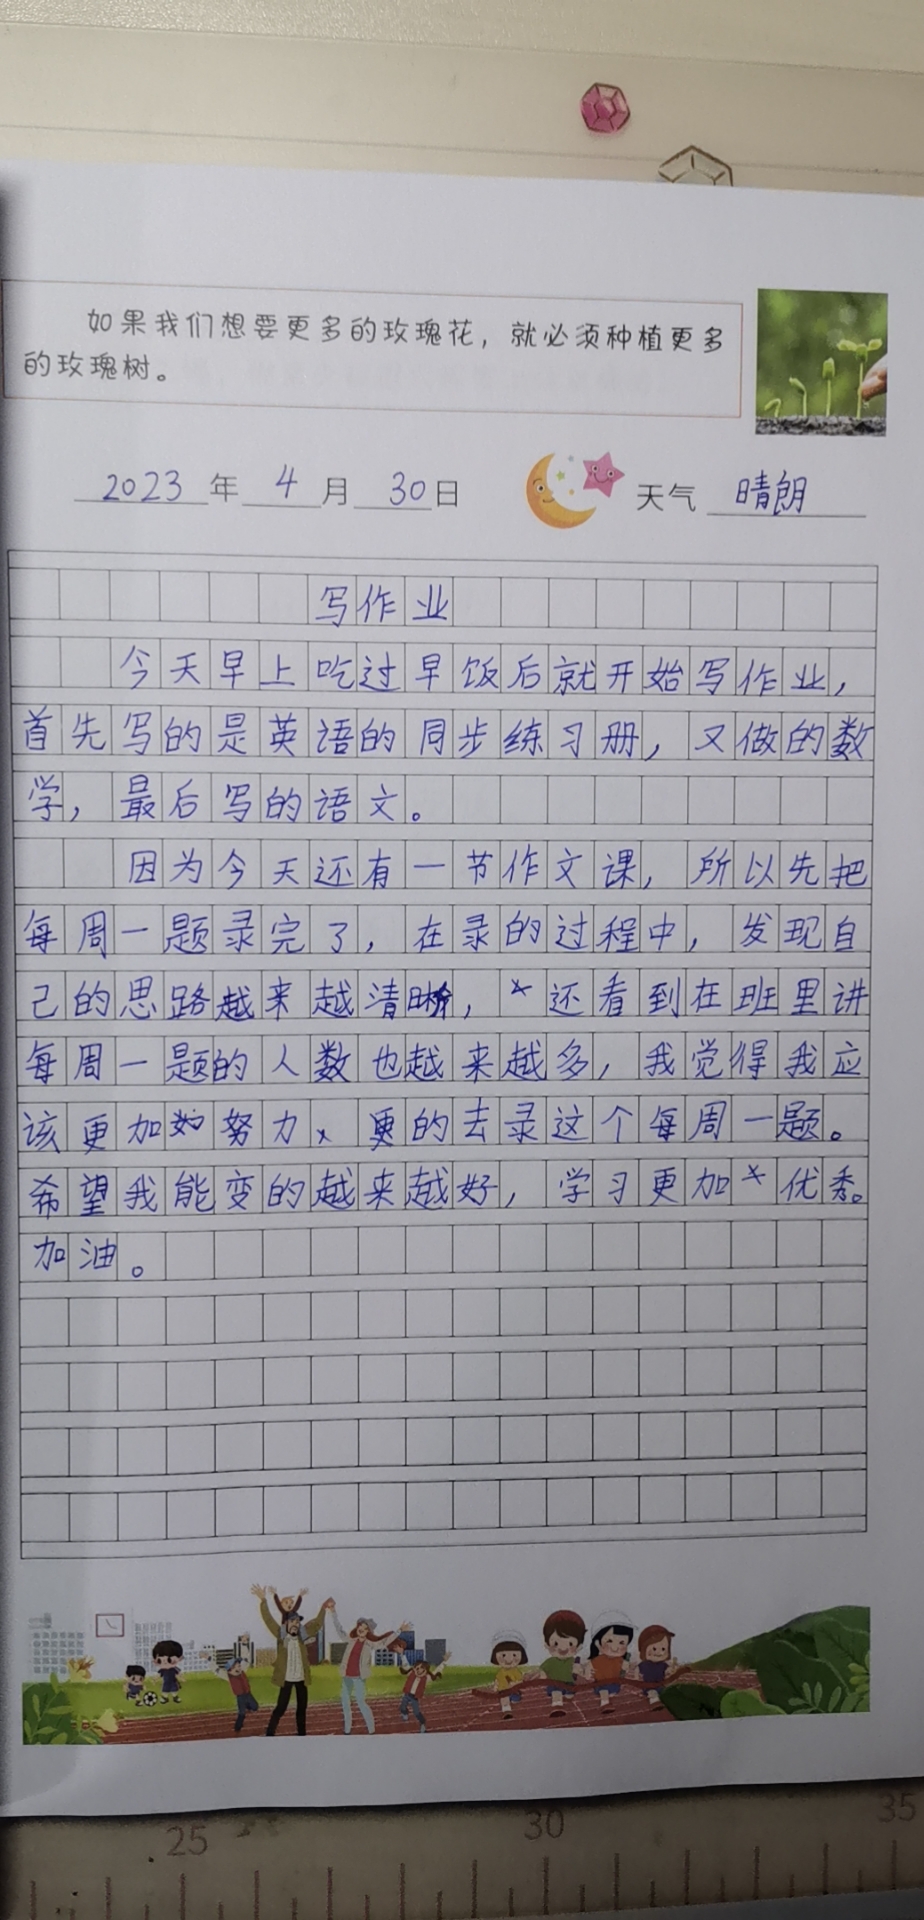 如果我们想要更多的玫瑰花，就必须种植更多
的玫瑰树。
2023年4月30日 天气 晴朗
写作业
今天早上吃过早饭后就开始写作业，
首先写的是英语的同步练习册，又做的数
学，最后写的语文。
因为今天还有一节作文课，所以先把
每周一题录完了，在录的过程中，发现自
己的思路越来越清晰，还看到在班里讲
每周一题的人数也越来越多，我觉得我应
该更加努力、更的去录这个每周一题。
希望我能变的越来越好，学习更加优秀。
加油。
25 30 35